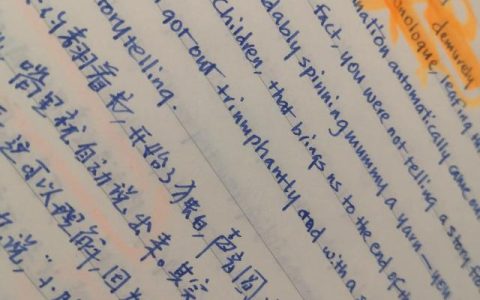 demurely
monologue, leafing
mation automatically came out
fact, you were not telling a story for
dably spinning mummy a yarn — you
Children, that brings us to the end of
got out triumphantly and with a s
storytelling.
翻着书,开始了独白,
嘴里就自动说出来。其实
这可以理解,因
说,“小